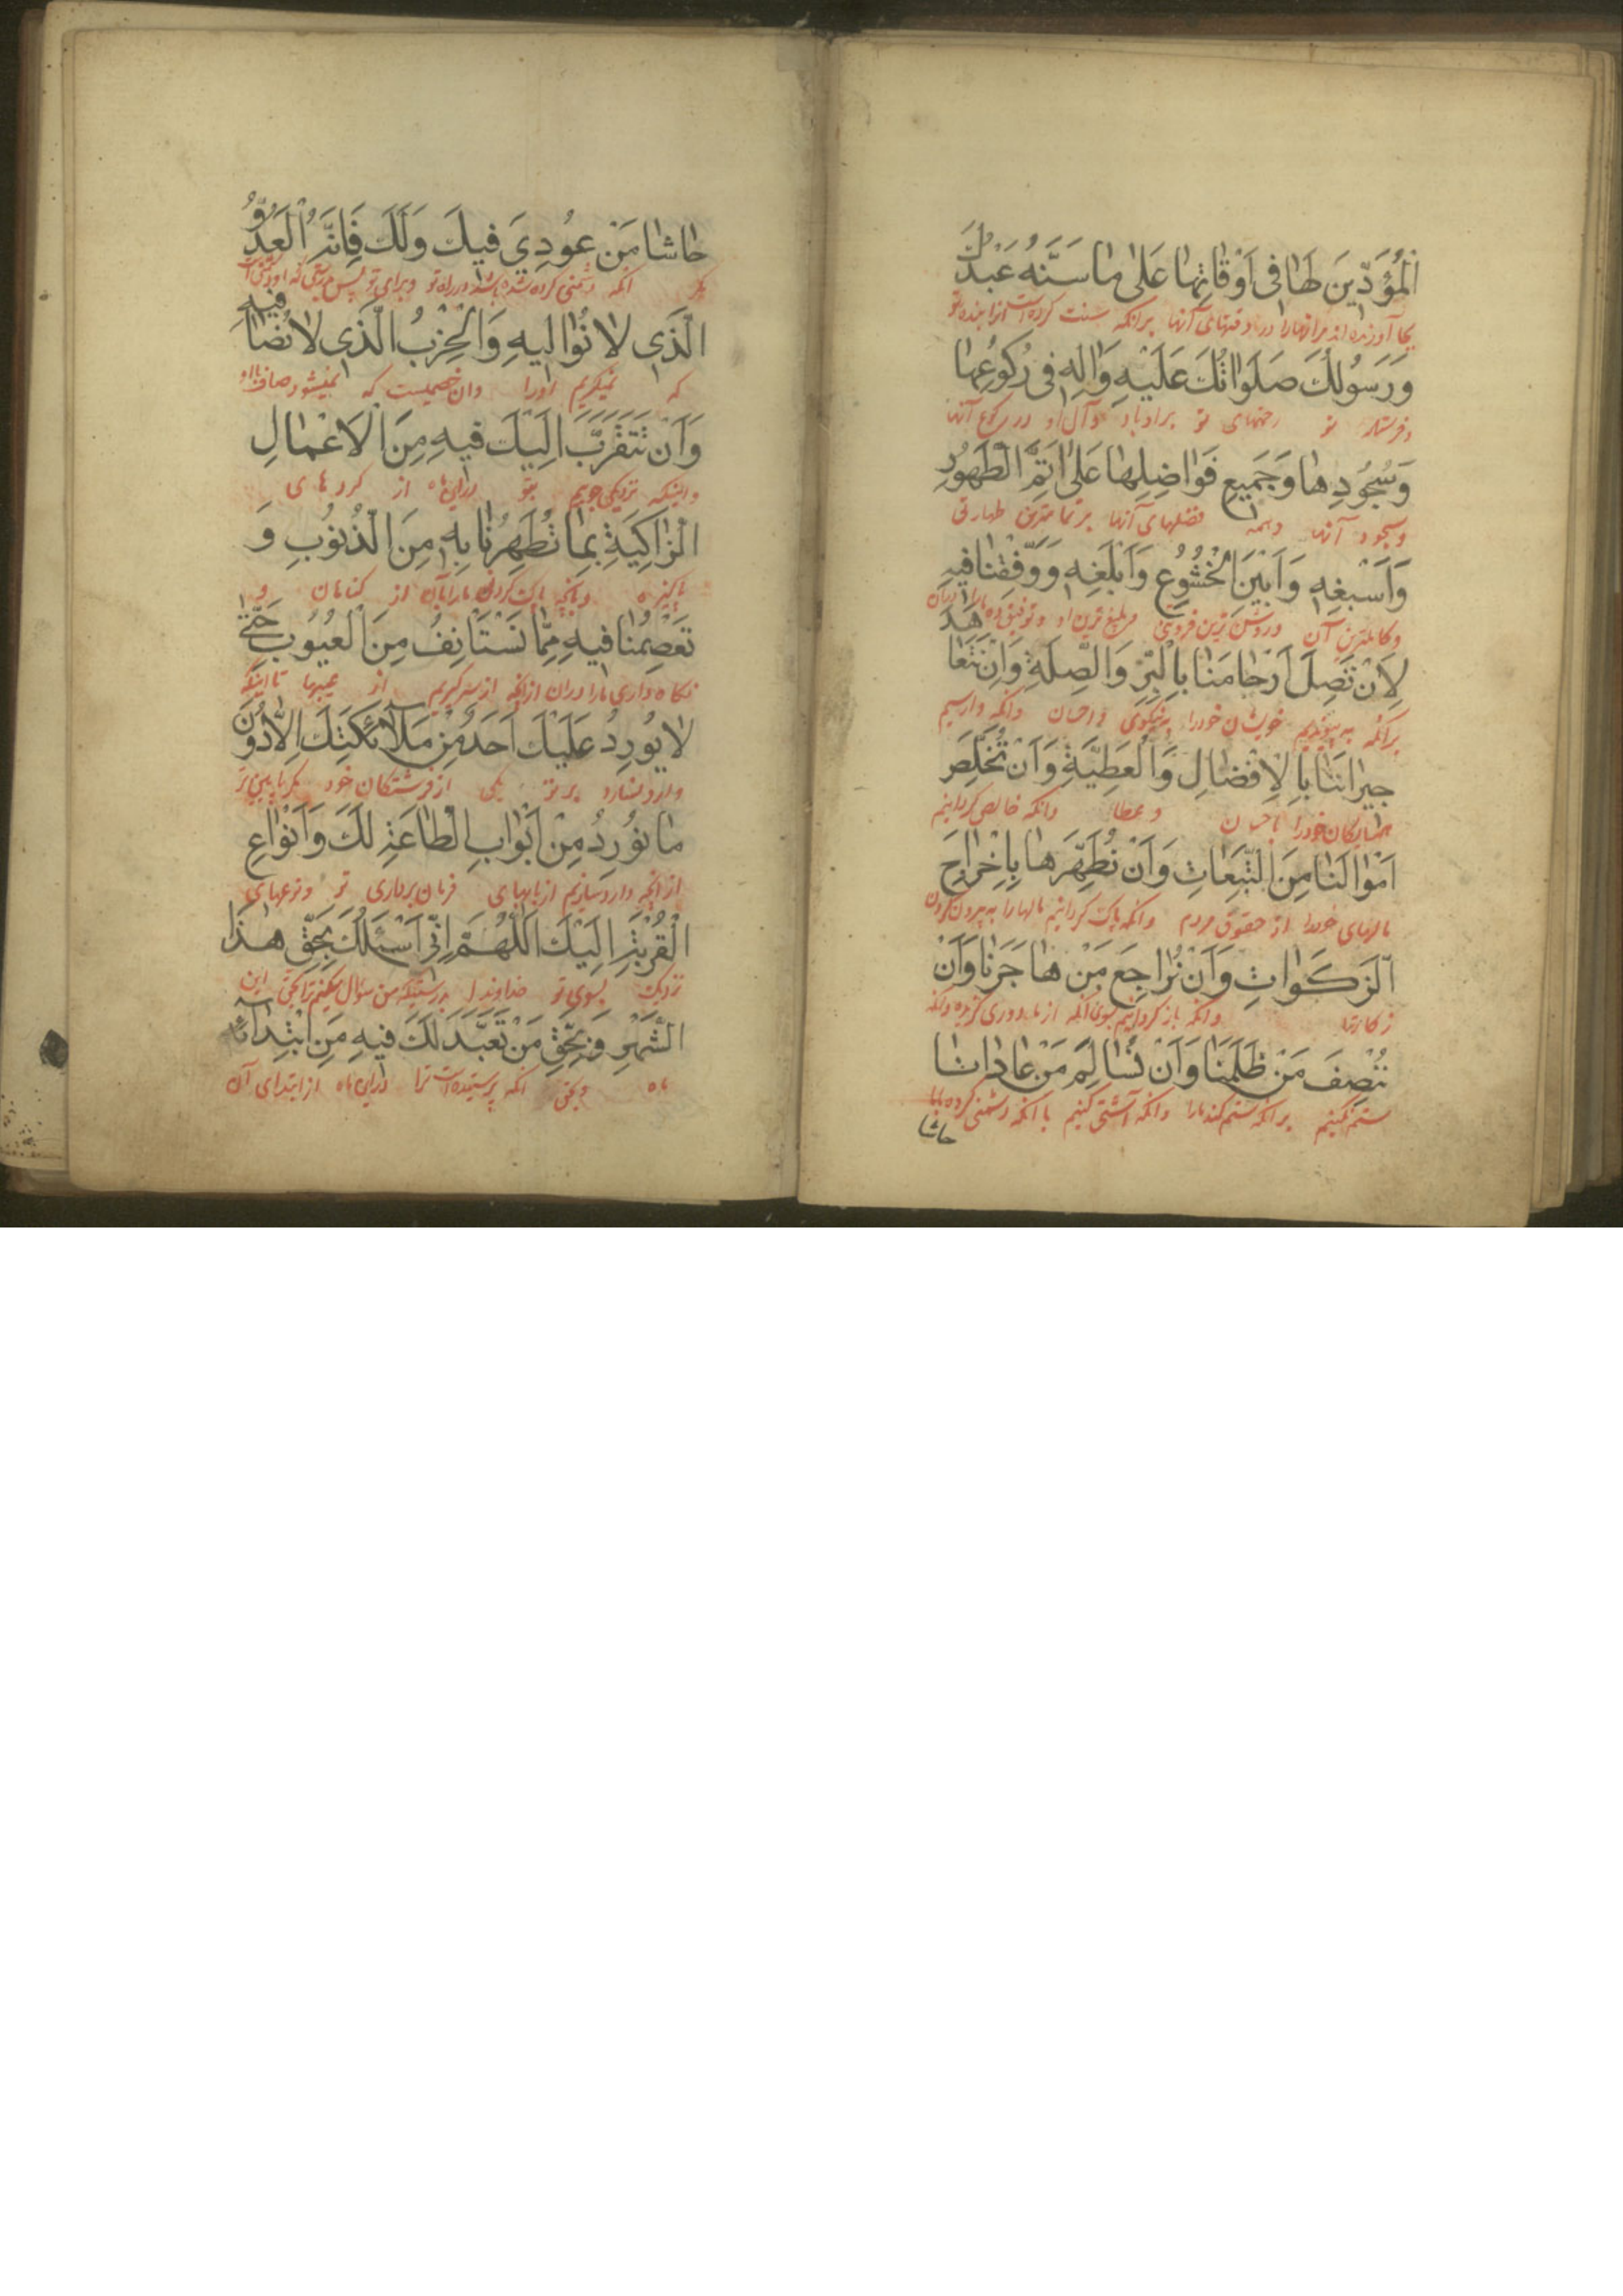 الْمُؤَدّينَ لَها فى اَوْقاتِها عَلىٰ ما سَنَّهُ عَبْدُكَ
بجا آورنده اند مر انهارا در وقتهای آنها برانکه سنت کرده است انرا بنده تو
وَرَسُولُكَ صَلَواتُكَ عَلَيْهِ وَاٰلِهِ فى رُكُوعِها
وفرستاده تو رحمتهای تو براو باد وآل او در رکوع آنها
وَسُجُودِها وَجَميعِ فَواضِلِها عَلىٰ اَتَمِّ الطَّهُورِ
وسجود آنها وهمه فضلهای آنها بر تمامترین طهارتی
وَاَسْبَغِهِ وَاَبْيَنِ الْخُشُوعِ وَاَبْلَغِهِ وَوَفِّقْنا فيهِ
وکاملترین آن وروشن ترین فروتنی وبلیغ ترین او وتوفیق ده مارا دران
لِاَنْ نَصِلَ اَرْحامَنا بِالْبِرِّ وَالصِّلَةِ وَاَنْ نَتَعاهَدَ
برانکه به پیوندیم خویشان خودرا به نیکوی واحسان وانکه وارسیم
جيرانَنا بِالْاِفْضالِ وَالْعَطِيَّةِ وَاَنْ نُخَلِّصَ
همسایکان خودرا باحسان وعطا وانکه خالص کردانیم
اَمْوالَنا مِنَ التَّبِعاتِ وَاَنْ نُطَهِّرَها بِاِخْراجِ
مالهای خودرا از حقوق مردم وانکه پاک کردانیم مالهارا به بیرون کردن
الزَّكَواتِ وَاَنْ نُراجِعَ مَنْ هاجَرَنا وَاَنْ
زکاتها وانکه باز کردانیم بسوی انکه از ما دوری کزیده وانکه
نُنْصِفَ مَنْ ظَلَمَنا وَاَنْ نُسالِمَ مَنْ عادانا
ستم نکنیم برانکه ستم کند مارا وانکه آشتی کنیم با انکه دشمنی کرده با ما
حاشا
حاشا مَنْ عُودِىَ فيكَ وَلَكَ فَاِنَّهُ الْعَدُوُّ
مکر انکه دشمنی کرده شده باشد در راه تو وبرای تو پس بدرستی که او دشمنی است
الَّذى لا نُواليهِ وَالْحِزْبُ الَّذى لا نُصافيهِ
که نمیکیریم اورا وان خصمیست که نمیشود صاف با او
وَاَنْ نَتَقَرَّبَ اِلَيْكَ فيهِ مِنَ الْاَعْمالِ
واینکه نزدیکی جوییم بتو دراین ماه از کردهای
الزّاكِيَةِ بِما تُطَهِّرُنا بِهِ مِنَ الذُّنُوبِ وَ
پاکیزه وبانچه پاک کردانی مارا بآن از کناهان و
تَعْصِمُنا فيهِ مِمّا نَسْتَأنِفُ مِنَ الْعُيُوبِ حَتّىٰ
نکاه داری مارا دران ازانچه از سر کیریم از عیبها تا اینکه
لا يُورِدُ عَلَيْكَ اَحَدٌ مِنْ مَلآئِكَتِكَ اِلّا دُونَ
وارد نسازد بر تو یکی از فرشتکان خود مکر پایین تر
ما نُورِدُ مِنْ اَبْوابِ الطّاعَةِ لَكَ وَاَنْواعِ
ازانچه وارد سازیم از بابهای فرمان برداری تو ونوعهای
الْقُرْبَةِ اِلَيْكَ اَللّٰهُمَّ اِنّى اَسْئَلُكَ بِحَقِّ هٰذَا
نزدیک بسوی تو خداوندا بدرستیکه من سؤال میکنم ترا بحق این
الشَّهْرِ وَبِحَقِّ مَنْ تَعَبَّدَ لَكَ فيهِ مِنِ ابْتِدائِهِ
ماه وبحق انکه پرستیده است ترا دراین ماه از ابتدای آن